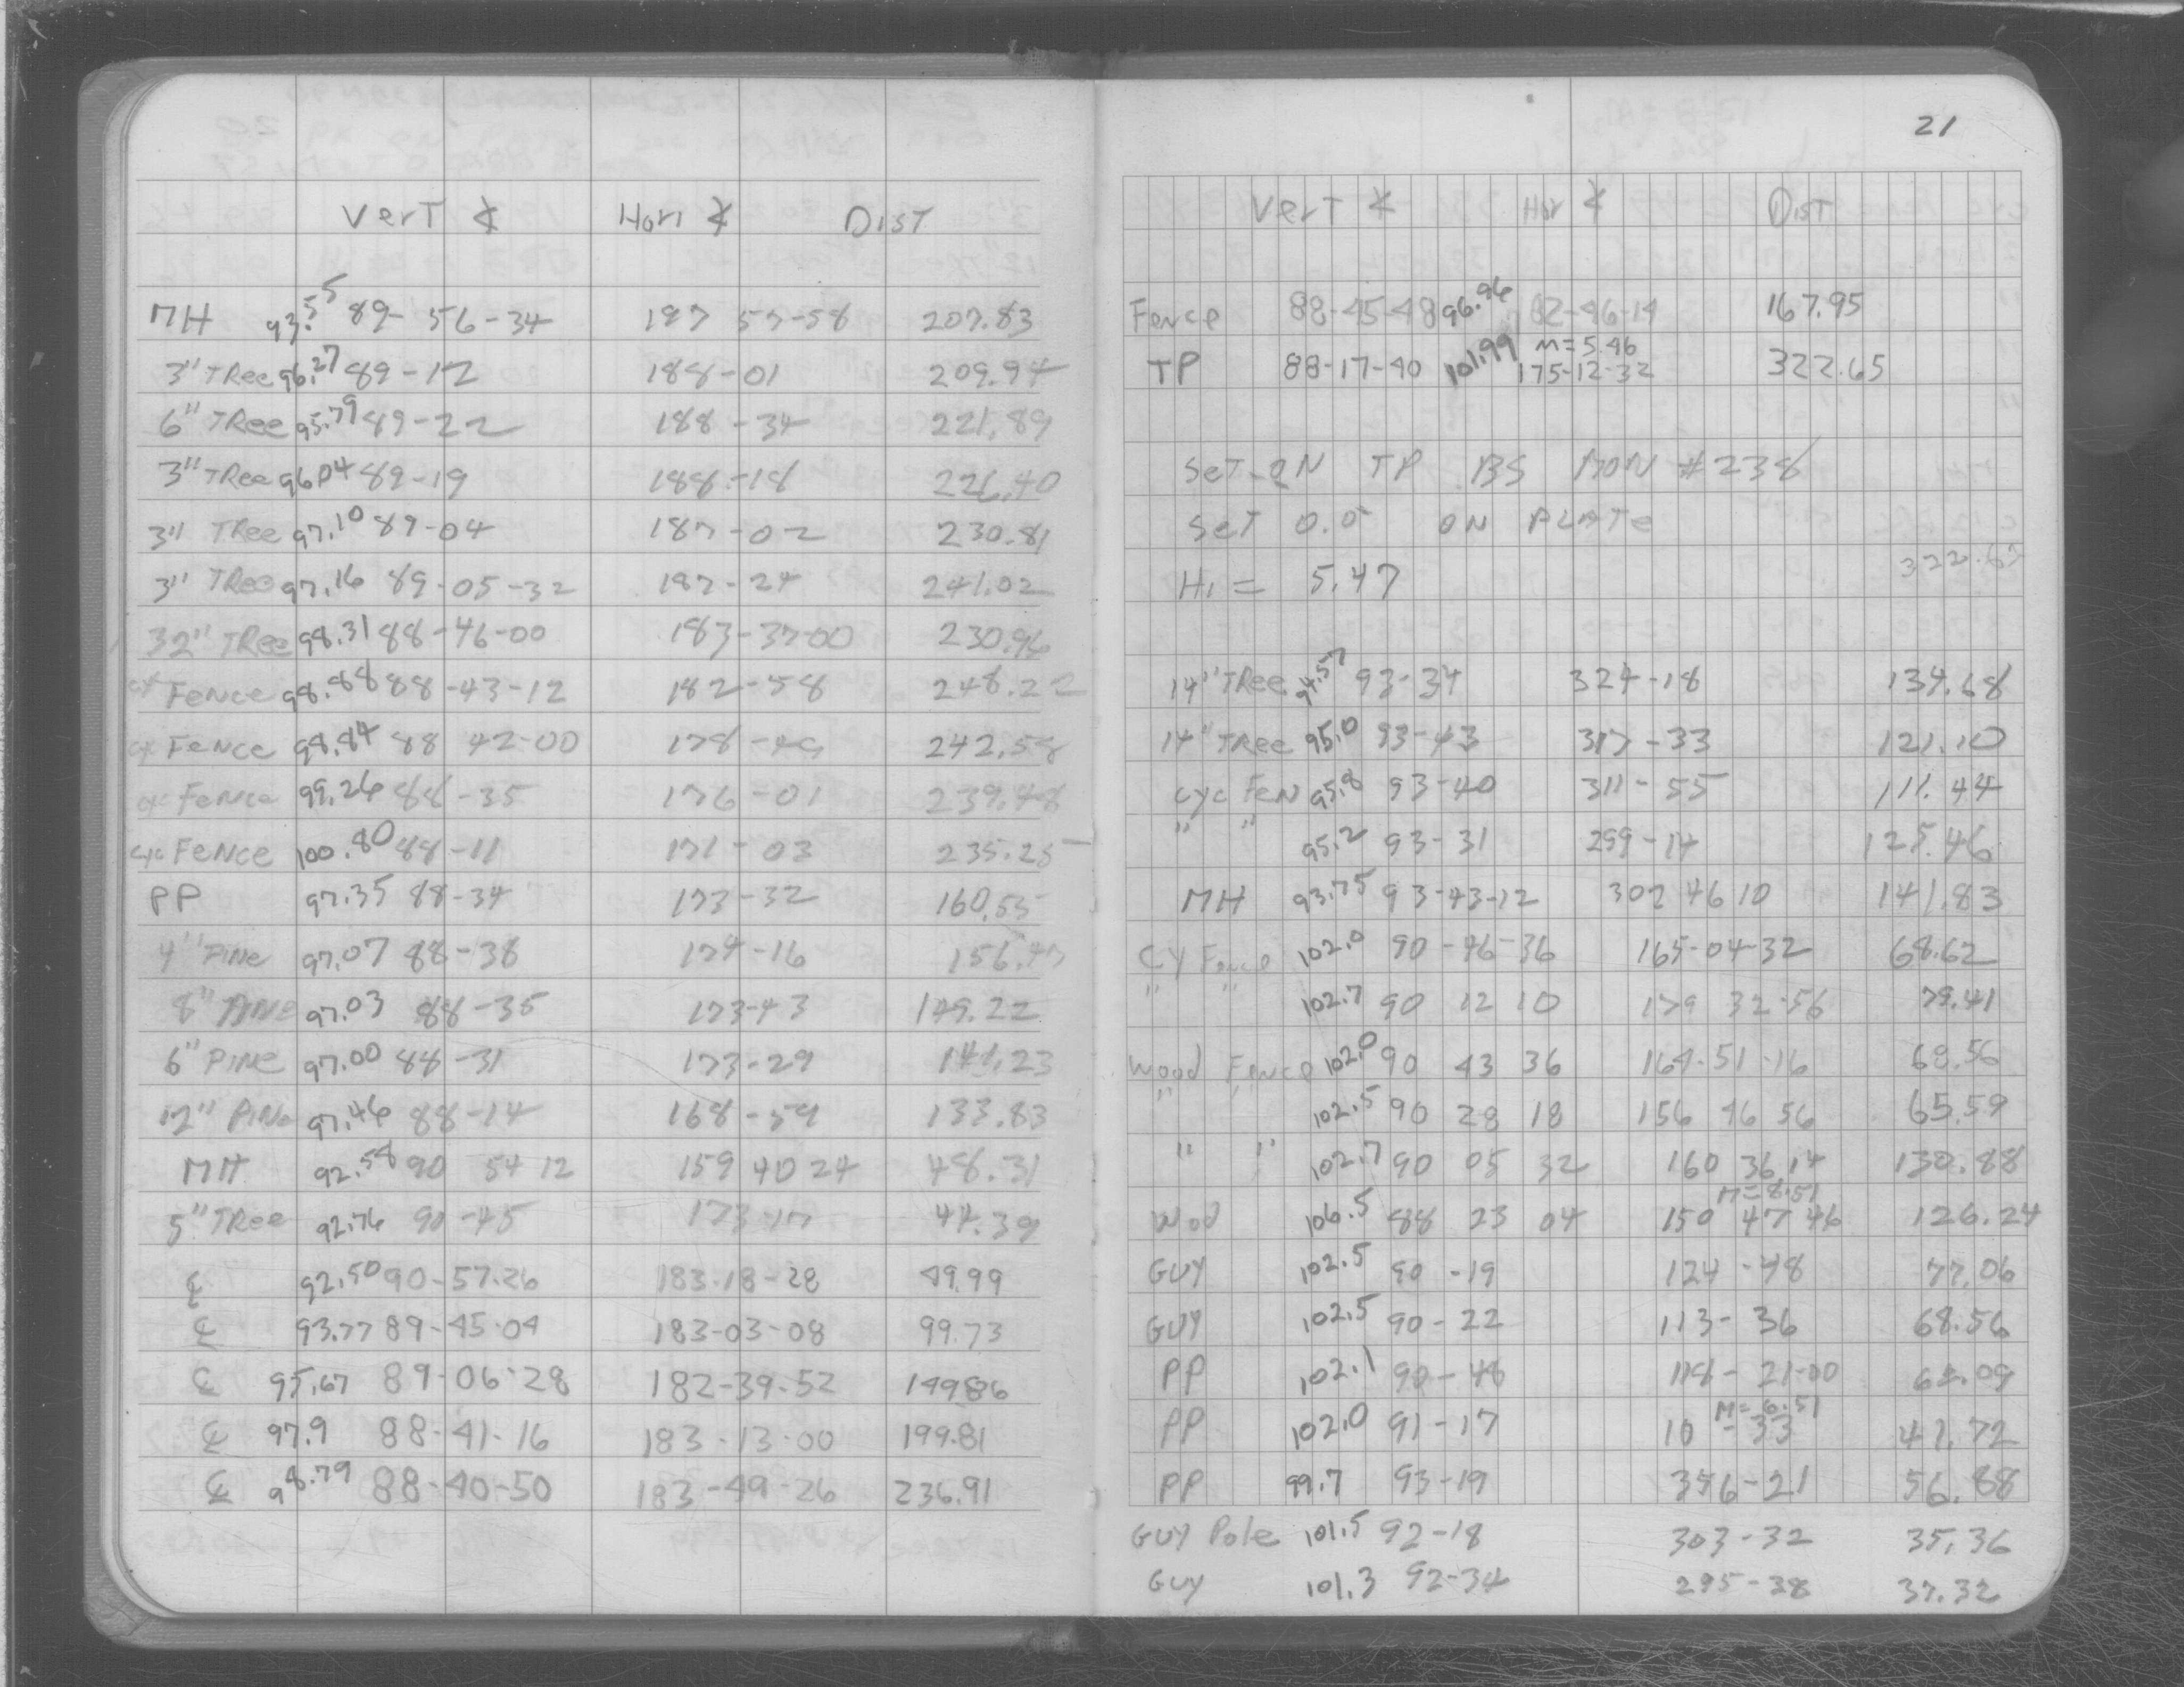 VerT ∢ Hori ∢ DIST
MH 93.55 89-56-34 187 57-58 207.83
3" TRee 96.27 89-12 188-01 209.94
6" TRee 95.79 89-22 188-34 221.89
3" TRee 96.04 89-19 188-18 226.40
3" TRee 97.10 89-04 187-02 230.81
3" TRee 97.16 89-05-32 187-24 241.02
32" TRee 98.31 88-46-00 183-37-00 230.96
cy Fence 98.88 88-43-12 182-58 248.22
cy Fence 98.84 88 42-00 178-49 242.58
cy Fence 99.26 88-35 176-01 239.48
cyc Fence 100.80 88-11 171-03 235.25
PP 97.35 88-34 173-32 160.55
4" PINe 97.07 88-38 174-16 156.47
8" PINe 97.03 88-35 173-43 149.22
6" PINe 97.00 88-31 173-29 141.23
12" PINe 97.46 88-14 168-59 133.83
MH 92.58 90 54 12 159 40 24 48.31
5" TRee 92.76 90-45 173-17 44.39
℄ 92.50 90-57-26 183-18-28 49.99
℄ 93.77 89-45-04 183-03-08 99.73
℄ 95.67 89-06-28 182-39-52 149.86
℄ 97.9 88-41-16 183-13-00 199.81
℄ 98.79 88-40-50 183-49-26 236.91
21
VerT ∢ Hor ∢ DIST
Fence 88-45-48 96.96 82-46-14 167.95
M=5.46
TP 88-17-40 101.99 175-12-32 322.65
SeT-ON TP BS MON #238
SeT 0.0 ON PLATe
322.65
HI = 5.47
14" TRee 94.57 93-34 324-18 134.68
14" TRee 95.0 93-43 317-33 121.10
cyc Fen 95.8 93-40 311-55 111.44
" " 95.2 93-31 299-14 125.46
MH 93.75 93-43-12 302 46 10 141.83
CY Fence 102.0 90-46-36 165-04-32 68.62
" " 102.7 90 12 10 179 32-56 79.41
Wood Fence 102.0 90 43 36 164-51-16 68.56
" " 102.5 90 28 18 156 46 56 65.59
" " 102.7 90 05 32 160 36 14 130.88
M=8.51
Wod 106.5 88 23 04 150 47 46 126.24
GUY 102.5 90-19 124-48 77.06
GUY 102.5 90-22 113-36 68.56
PP 102.1 90-46 118-21-00 62.09
M=6.51
PP 102.0 91-17 10-33 41.72
PP 99.7 93-19 356-21 56.88
GUY Pole 101.5 92-18 303-32 35.36
GUY 101.3 92-34 295-38 37.32